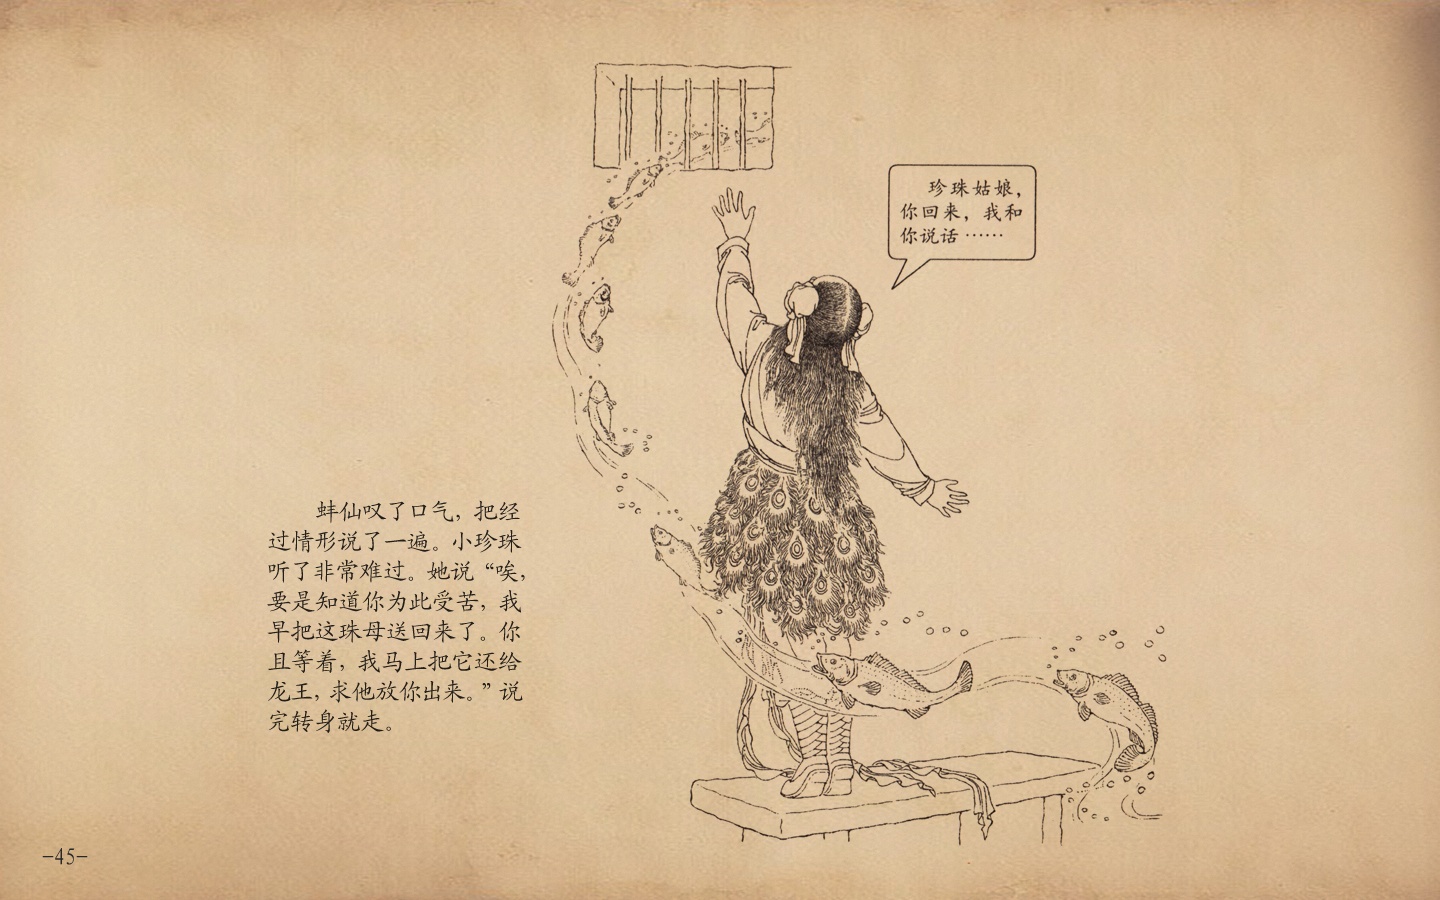 珍珠姑娘，
你回来，我和
你说话……
蚌仙叹了口气，把经
过情形说了一遍。小珍珠
听了非常难过。她说“唉，
要是知道你为此受苦，我
早把这珠母送回来了。你
且等着，我马上把它还给
龙王，求他放你出来。”说
完转身就走。
-45-